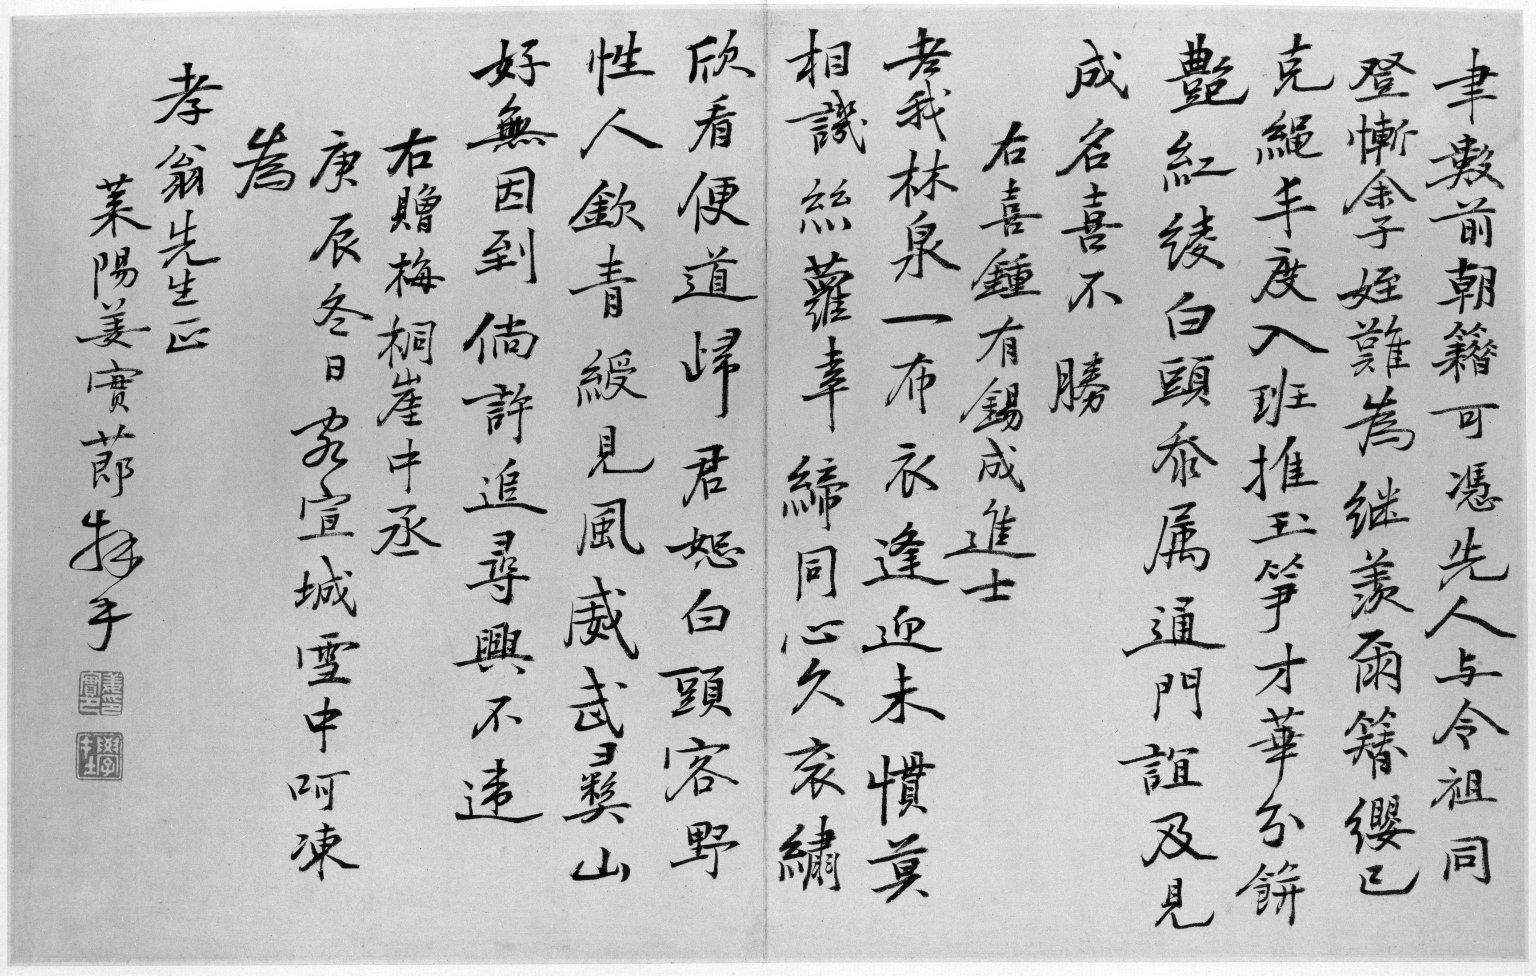 聿數前朝籍可憑先人与令祖同
登慚余子姪難為继羨爾簪纓已
克繩丰度入班推玉笋才華分餅
艷紅綾白頭忝属通門誼及見
成名喜不勝
右喜鍾有錫成進士
老我林泉一布衣逢迎未慣莫
相譏絲蘿幸締同心久衮繡
欣看便道歸君恕白頭客野
性人欽青綬見風威武彛山
好無因到倘許追尋興不违
右贈梅桐崖中丞
庚辰冬日客宣城雪中呵凍
為
孝翁先生正
萊陽姜實莭拜手
姜實莭印
學在